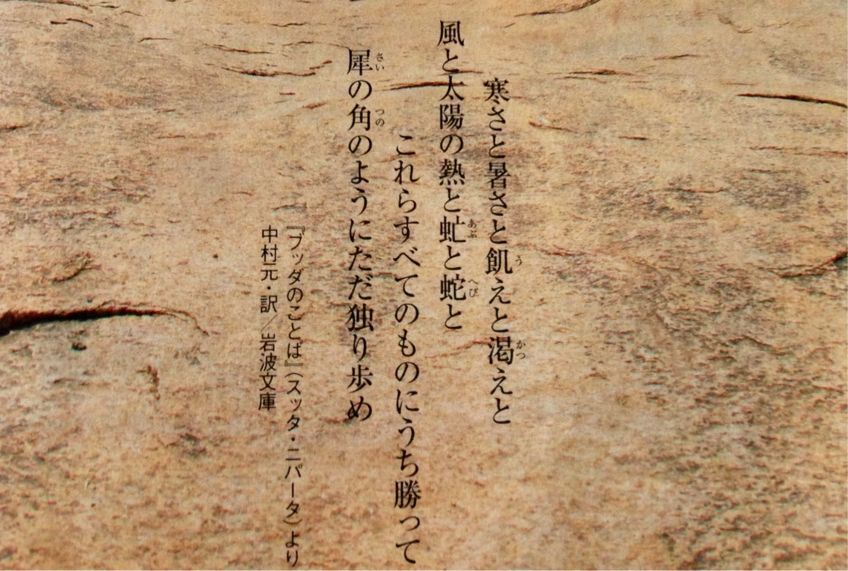 寒さと暑さと飢えと渇えと
風と太陽の熱と虻と蛇と
これらすべてのものにうち勝って
犀の角のようにただ独り歩め
『ブッダのことば』（スッタ・ニパータ）より
中村元・訳／岩波文庫